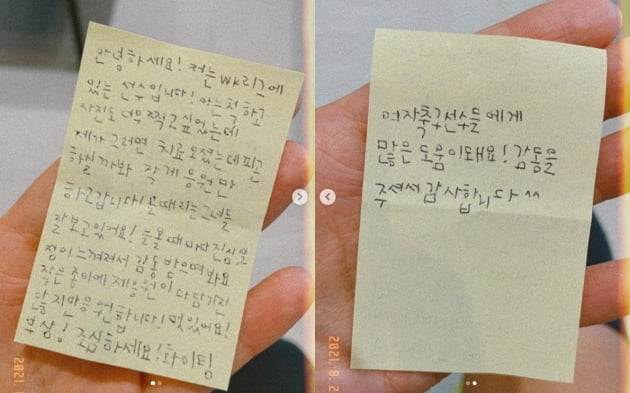 안녕하세요! 저는 WK리그에
있는 선수입니다! 아는척 하고
사진도 너무 찍고 싶었는데
제가 그러면 치료 오셨는데 피곤
하실까봐 작게 응원만
하고갑니다! 골때리는그녀들
잘보고있어요! 늘볼때마다 진심,열
정이 느껴져서 감동받으며봐요
작은종이에 제응원이 다담기진
않지만응원합니다! 멋있어요!
부상! 조심하세요! 화이팅
여자축구선수들에게
많은 도움이돼요! 감동을
주셔서 감사합니다 ^^
2021.8.2